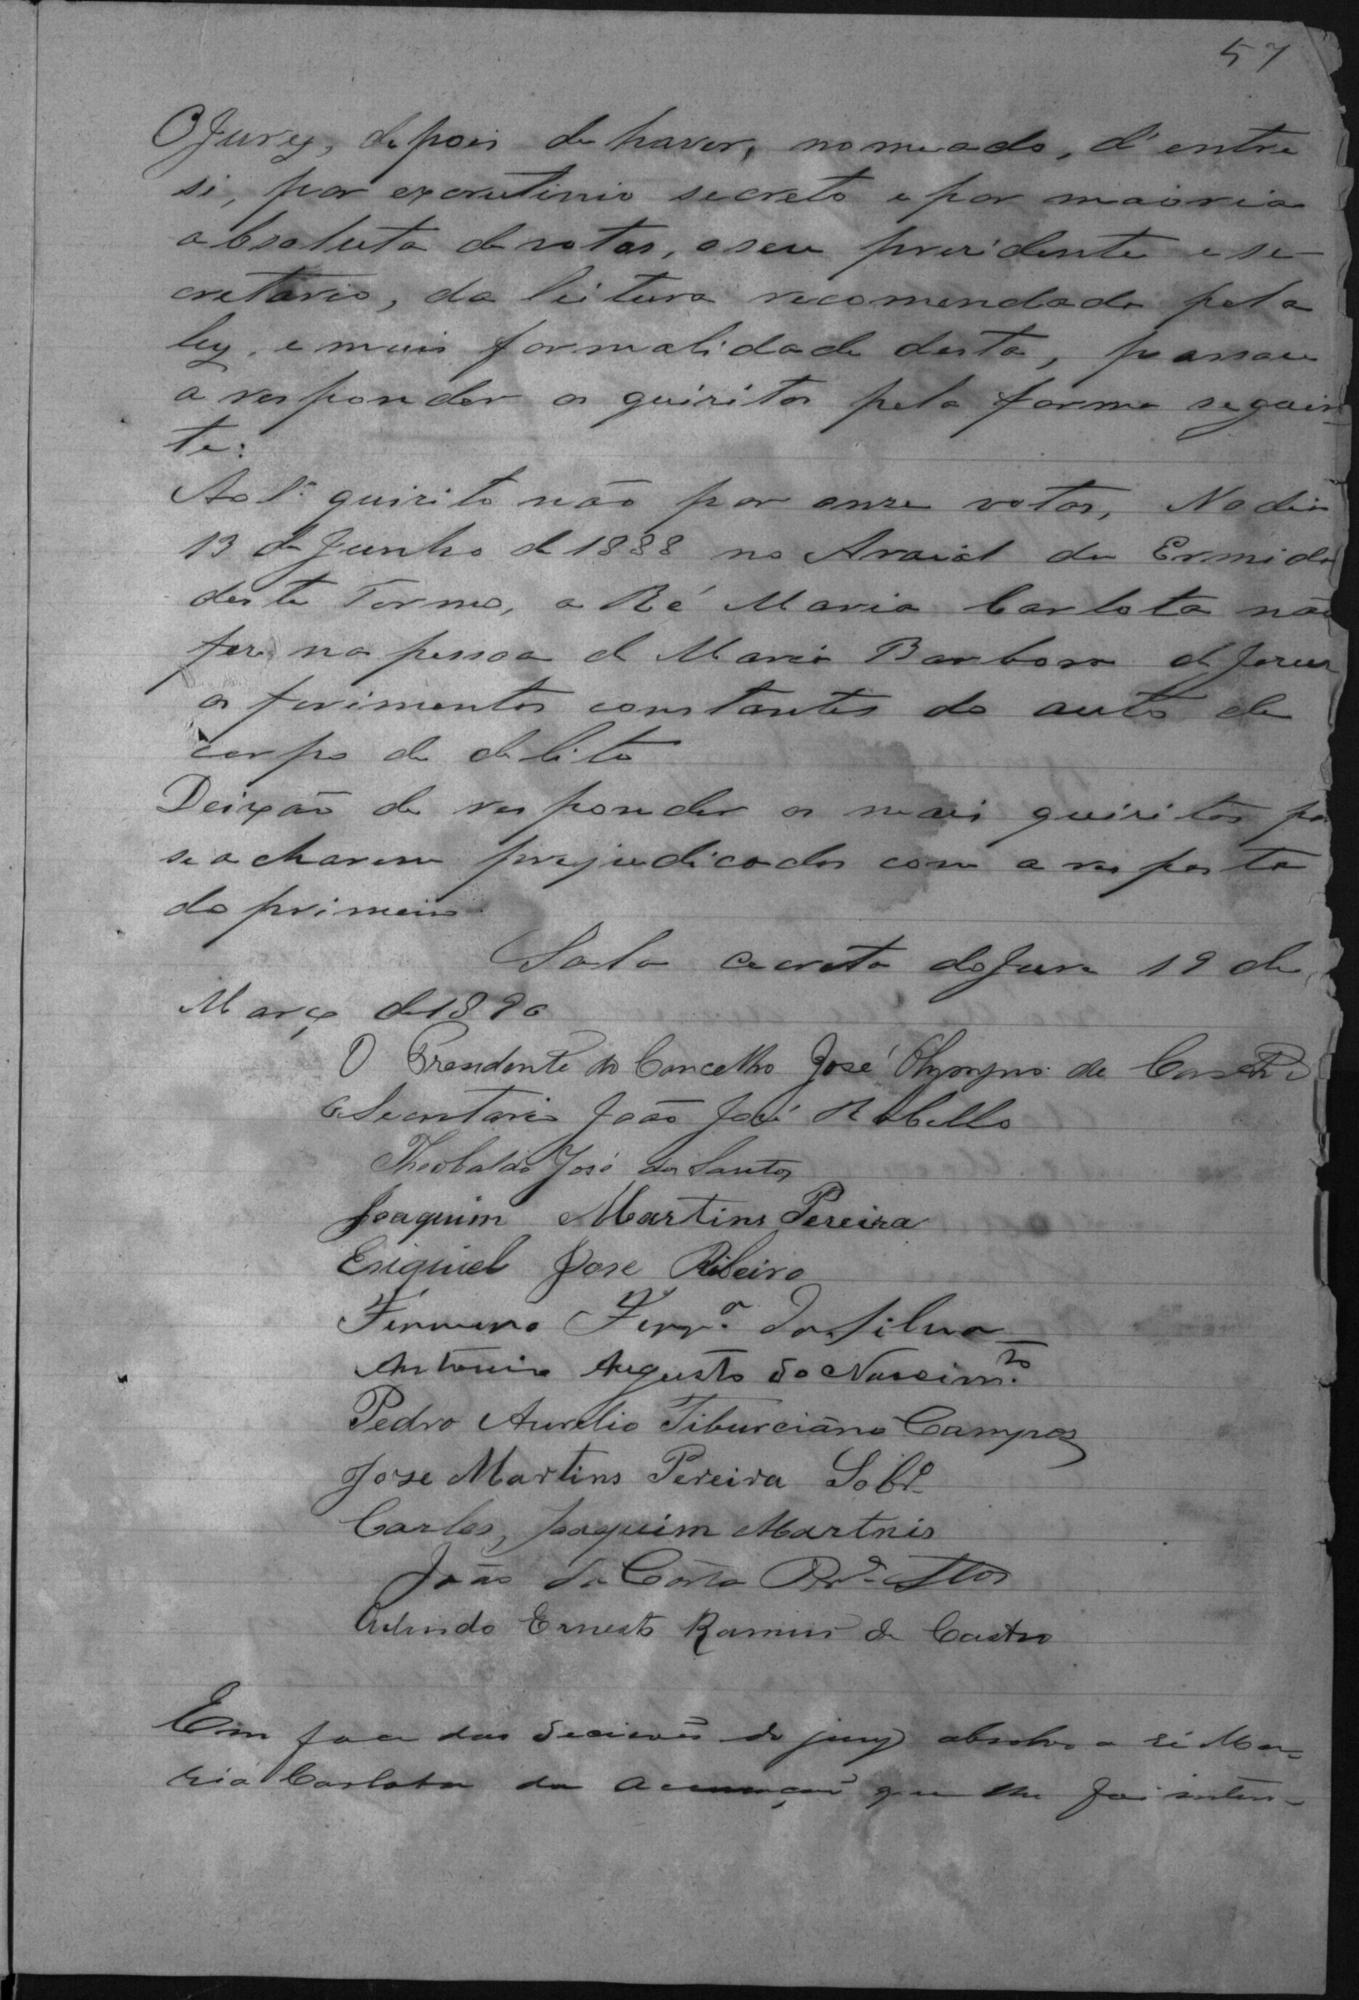 57
O Jury, depois de haver, nomeado, d'entre
si, por escrutinio secreto e por maioria
absoluta de votos, o seu presidente e se-
cretario, da leitura recomendada pela
ley, e mais formalidade desta, passou
a responder os quisitos pela forma seguin-
te:
Ao 1º quisito não por onze votos, No dia
13 de Junho de 1888 no Araial da Ermida
deste Termo, a Ré Maria Carlota não
fez na pessoa de Maria Barbosa de Jesus
os ferimentos constantes do auto de
corpo de delito
Deixão de responder os mais quisitos po
se acharem prejudicados com a resposta
do primeiro.
Sala secreta do Jury 19 de
Março de 1890
O Presidente do Concelho José Olympio de Castro
O Secretario João José Rabello
Theobaldo José dos Santos
Joaquim Martins Pereira
Esiquiel Jose Ribeiro
Firmino Ferrª da Silva
Antonio Augusto do Nascimto
Pedro Aurelio Tiburciano Campos
Jose Martins Pereira Sobrº
Carlos Joaquim Martnis
João da Costa
Ernesto Ramos de Castro
Em face das decisoẽs do jury absolvo a ré Ma-
ria Carlota da accusação que lhe foi inten-